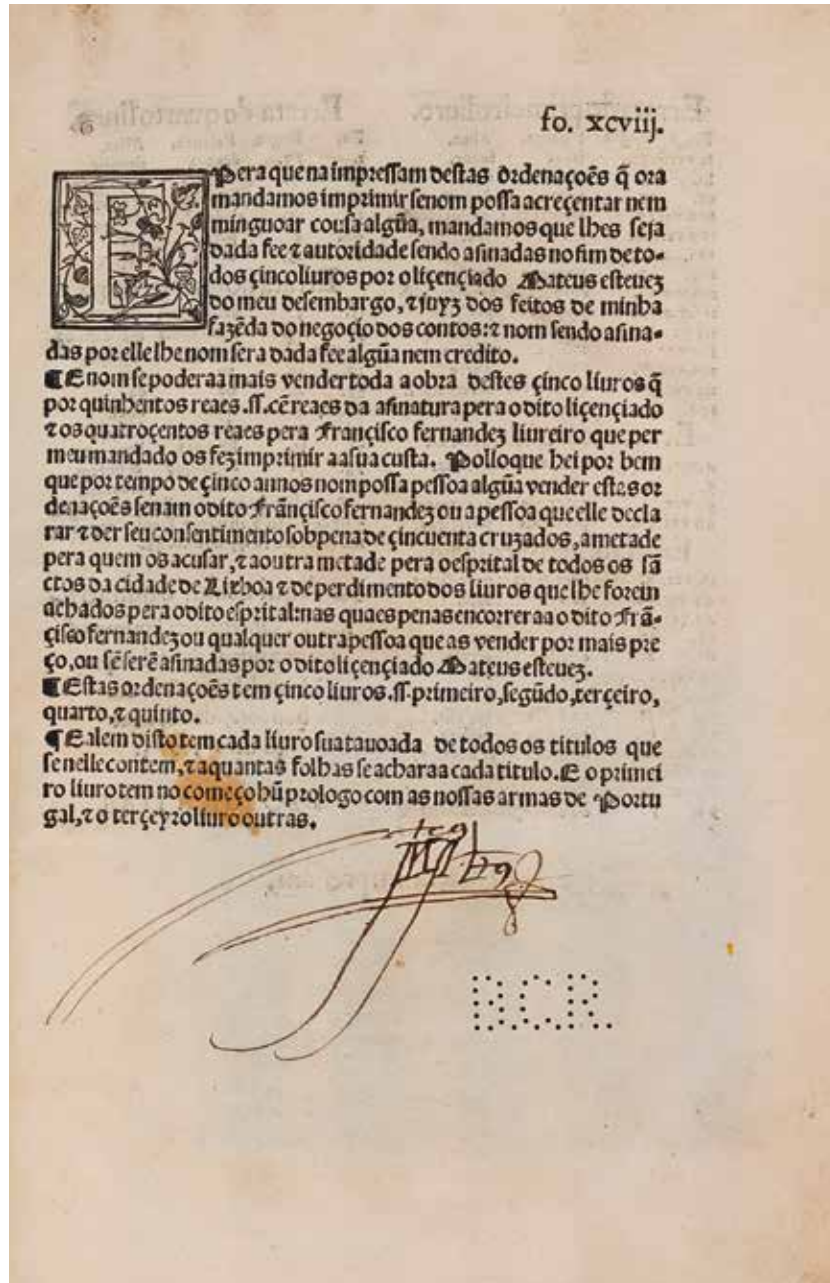 fo. xcviij.
E Pera que na impressam destas ordenaçoẽs q̃ ora
mandamos imprimir se nom possa acreçentar nem
minguoar cousa algũa, mandamos que lhes seja
dada fee ⁊ autoridade sendo asinadas no fim de to-
dos çinco liuros por o liçençiado Mateus esteuez
do meu desembargo, ⁊ juyz dos feitos de minha
fazẽda do negoçio dos contos: ⁊ nom sendo asina-
das por elle lhe nom sera dada fee algũa nem credito.
¶ E nom se poderaa mais vender toda a obra destes çinco liuros q̃
por quinhentos reaes .ſſ. cẽ reaes da asinatura pera o dito liçençiado
⁊ os quatroçentos reaes pera Françisco fernandez liureiro que per
meu mandado os fez imprimir aa sua custa. Pollo que hei por bem
que por tempo de çinco annos nom possa pessoa algũa vender estas or
denaçoẽs senam o dito Frãnçisco fernandez ou a pessoa que elle decla
rar ⁊ der seu consentimento sob pena de çincuenta cruzados, ametade
pera quem os acusar, ⁊ a outra metade pera o esprital de todos os sã
ctos da cidade de Lixboa ⁊ de perdimento dos liuros que lhe forem
achados pera o dito esprital: nas quaes penas encorreraa o dito Frã-
çisco fernandez ou qualquer outra pessoa que as vender por mais pre
ço, ou sẽ serẽ asinadas por o dito liçençiado Mateus esteuez.
¶ Estas ordenaçoẽs tem çinco liuros .ſſ. primeiro, segũdo, terçeiro,
quarto, ⁊ quinto.
¶ E alem disto tem cada liuro sua tauoada de todos os titulos que
se nelle contem, ⁊ a quantas folhas se acharaa cada titulo. E o primei
ro liuro tem no começo hũ prologo com as nossas armas de Portu
gal, ⁊ o terçeyro liuro outras.
B.C.R.